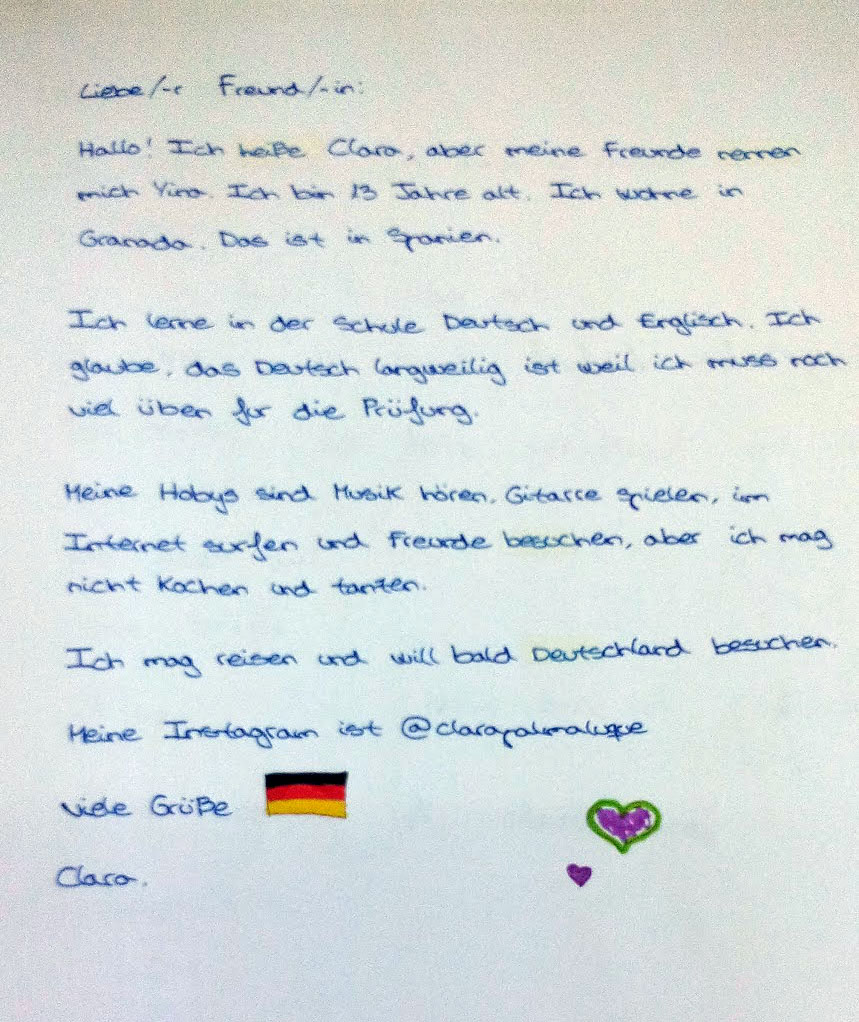 Liebe/-r Freund/-in:
Hallo! Ich heiße Clara, aber meine Freunde nennen
mich Yina. Ich bin 13 Jahre alt. Ich wohne in
Granada. Das ist in Spanien.
Ich lerne in der Schule Deutsch und Englisch. Ich
glaube, das Deutsch langweilig ist weil ich muss noch
viel üben fur die Prüfung.
Meine Hobys sind Musik hören, Gitarre spielen, im
Internet surfen und Freunde besuchen, aber ich mag
nicht Kochen und tanzen.
Ich mag reisen und will bald Deutschland besuchen.
Meine Instagram ist @clarapalmaluque
Viele Grüße
Clara.